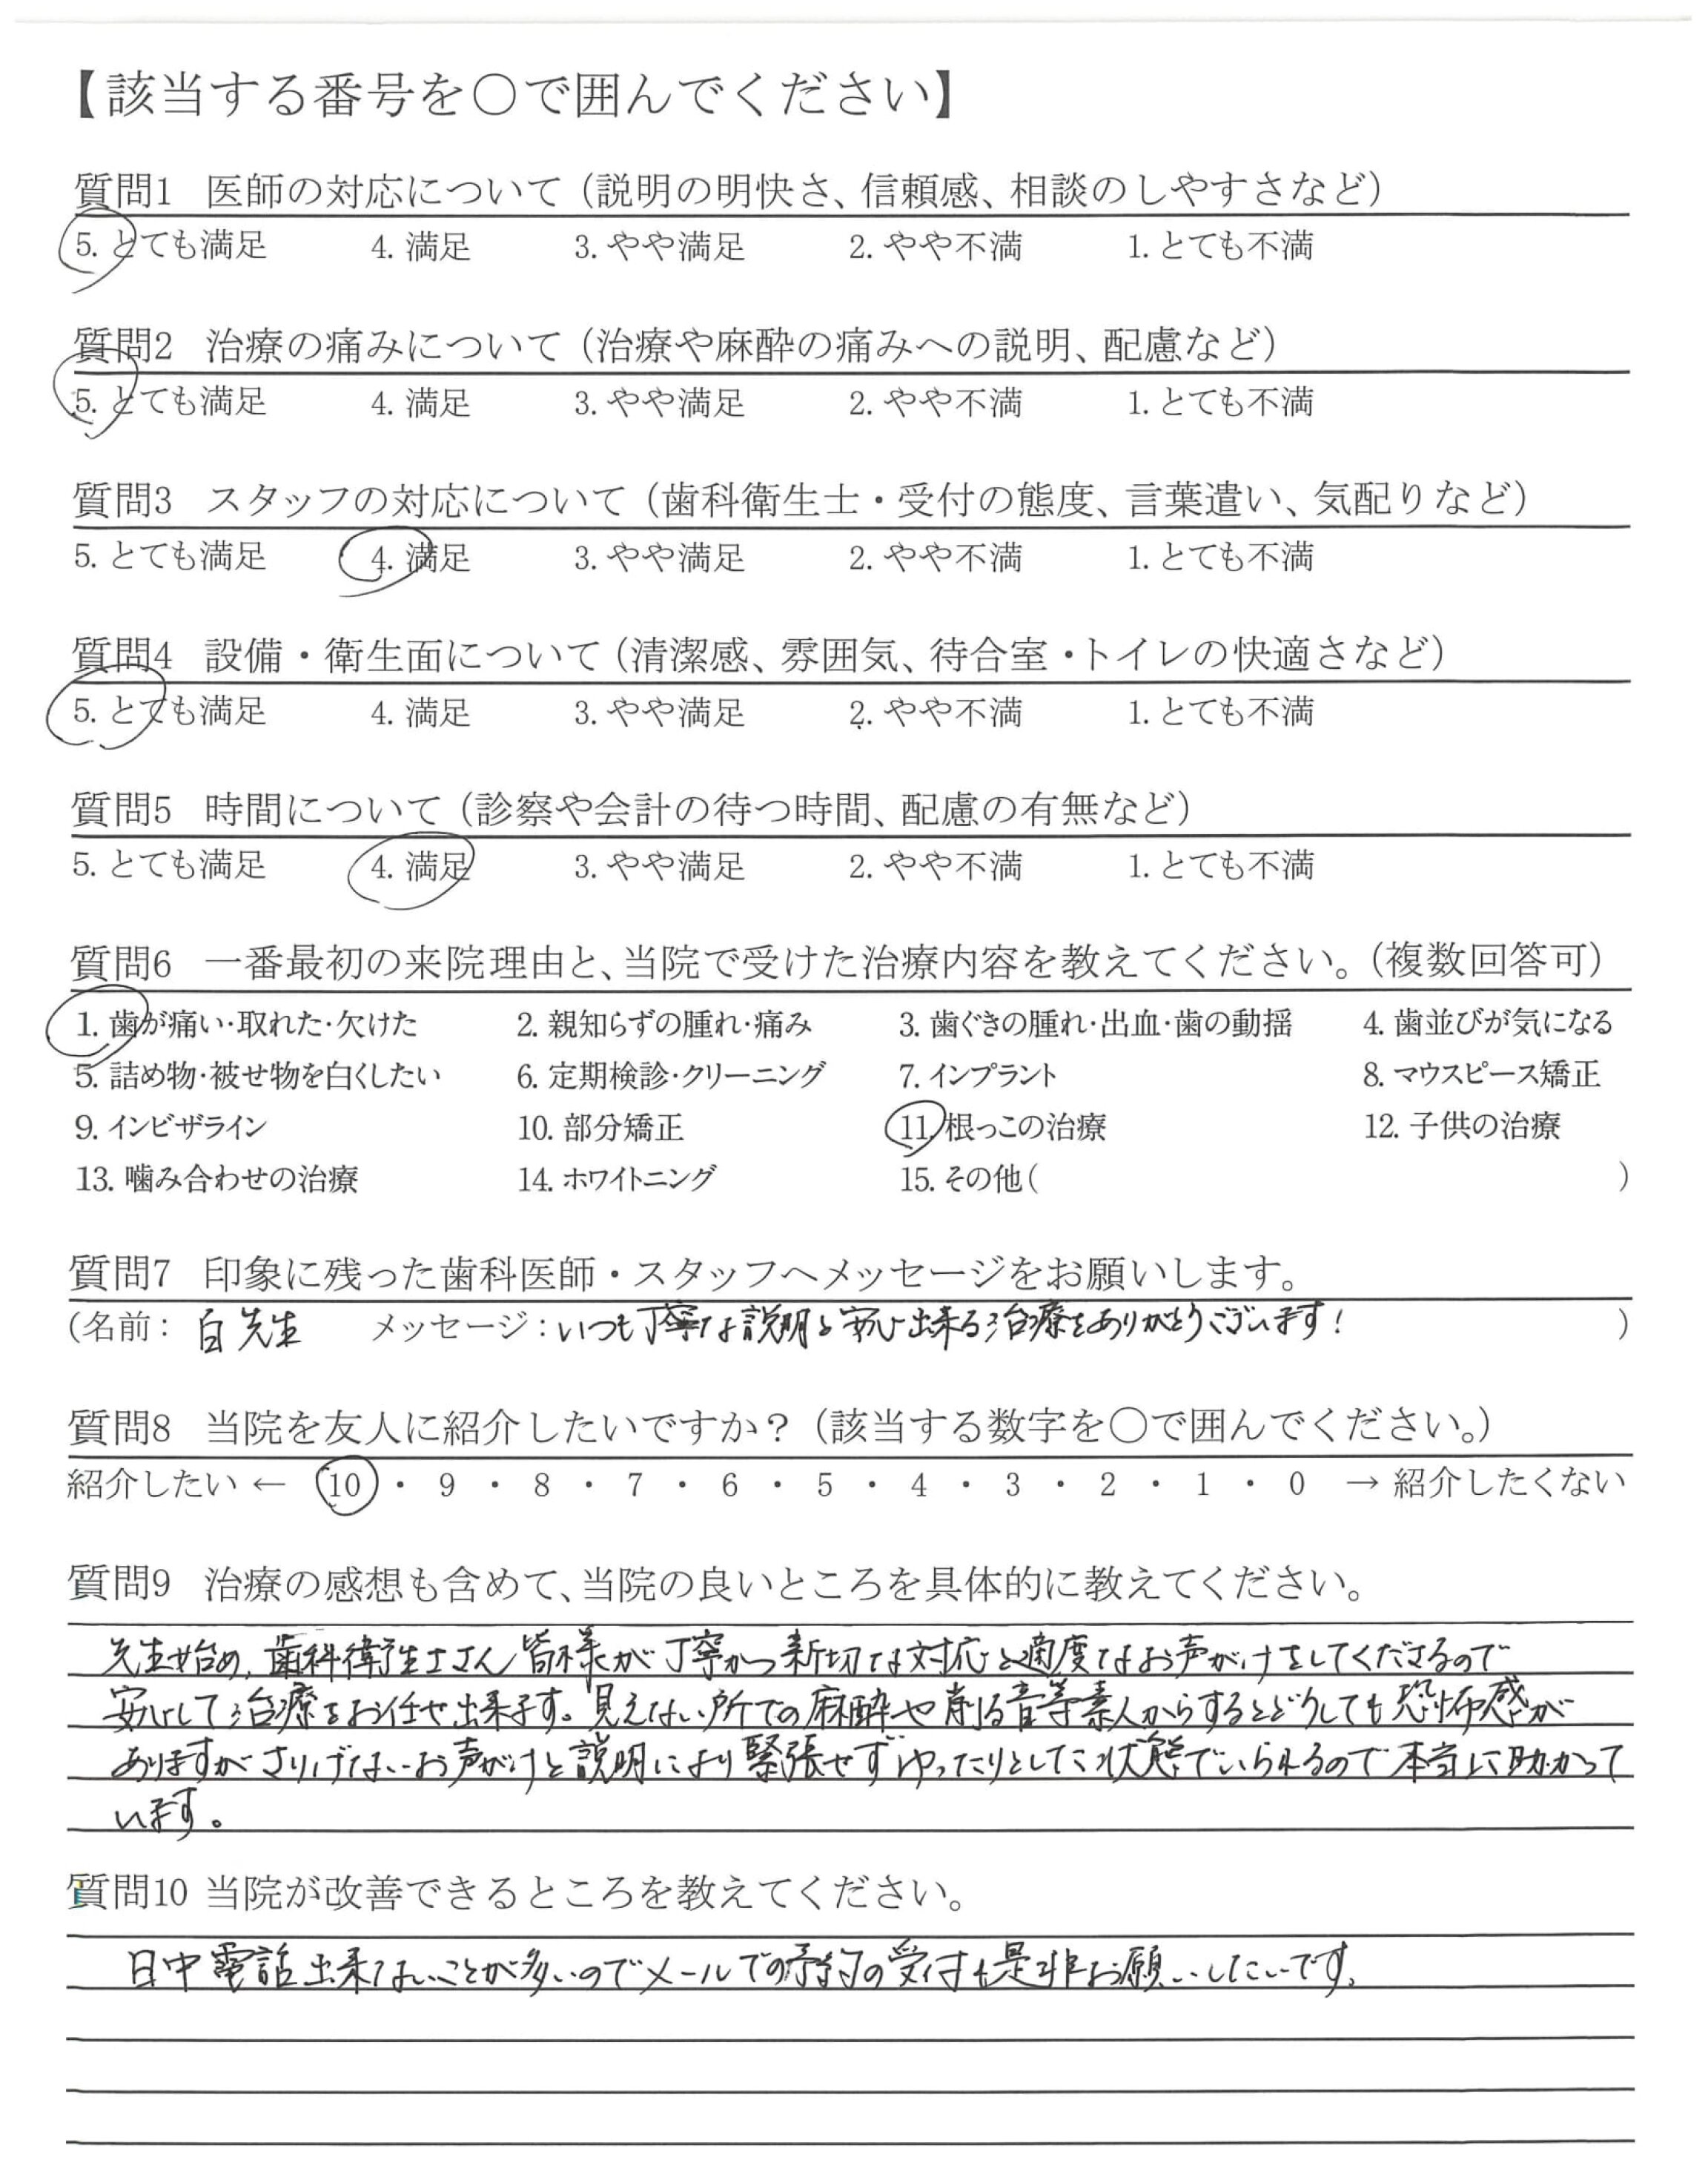 【該当する番号を○で囲んでください】
質問1 医師の対応について（説明の明快さ、信頼感、相談のしやすさなど）
5. とても満足 4. 満足 3. やや満足 2. やや不満 1. とても不満
質問2 治療の痛みについて（治療や麻酔の痛みへの説明、配慮など）
5. とても満足 4. 満足 3. やや満足 2. やや不満 1. とても不満
質問3 スタッフの対応について（歯科衛生士・受付の態度、言葉遣い、気配りなど）
5. とても満足 4. 満足 3. やや満足 2. やや不満 1. とても不満
質問4 設備・衛生面について（清潔感、雰囲気、待合室・トイレの快適さなど）
5. とても満足 4. 満足 3. やや満足 2. やや不満 1. とても不満
質問5 時間について（診察や会計の待つ時間、配慮の有無など）
5. とても満足 4. 満足 3. やや満足 2. やや不満 1. とても不満
質問6 一番最初の来院理由と、当院で受けた治療内容を教えてください。（複数回答可）
1. 歯が痛い・取れた・欠けた 2. 親知らずの腫れ・痛み 3. 歯ぐきの腫れ・出血・歯の動揺 4. 歯並びが気になる
5. 詰め物・被せ物を白くしたい 6. 定期検診・クリーニング 7. インプラント 8. マウスピース矯正
9. インビザライン 10. 部分矯正 11. 根っこの治療 12. 子供の治療
13. 噛み合わせの治療 14. ホワイトニング 15. その他（ ）
質問7 印象に残った歯科医師・スタッフへメッセージをお願いします。
（名前：白先生 メッセージ：いつも丁寧な説明と安心出来る治療をありがとうございます！ ）
質問8 当院を友人に紹介したいですか？（該当する数字を○で囲んでください。）
紹介したい ← 10 ・ 9 ・ 8 ・ 7 ・ 6 ・ 5 ・ 4 ・ 3 ・ 2 ・ 1 ・ 0 → 紹介したくない
質問9 治療の感想も含めて、当院の良いところを具体的に教えてください。
先生始め、歯科衛生士さん皆様が丁寧かつ親切な対応と適度なお声がけをしてくださるので
安心して治療をお任せ出来ます。見えない所での麻酔や削る音等素人からするとどうしても恐怖感が
ありますがさりげないお声がけと説明により緊張せずゆったりとした状態でいられるので本当に助かって
います。
質問10 当院が改善できるところを教えてください。
日中電話出来ないことが多いのでメールでの予約の受付も是非お願いしたいです。